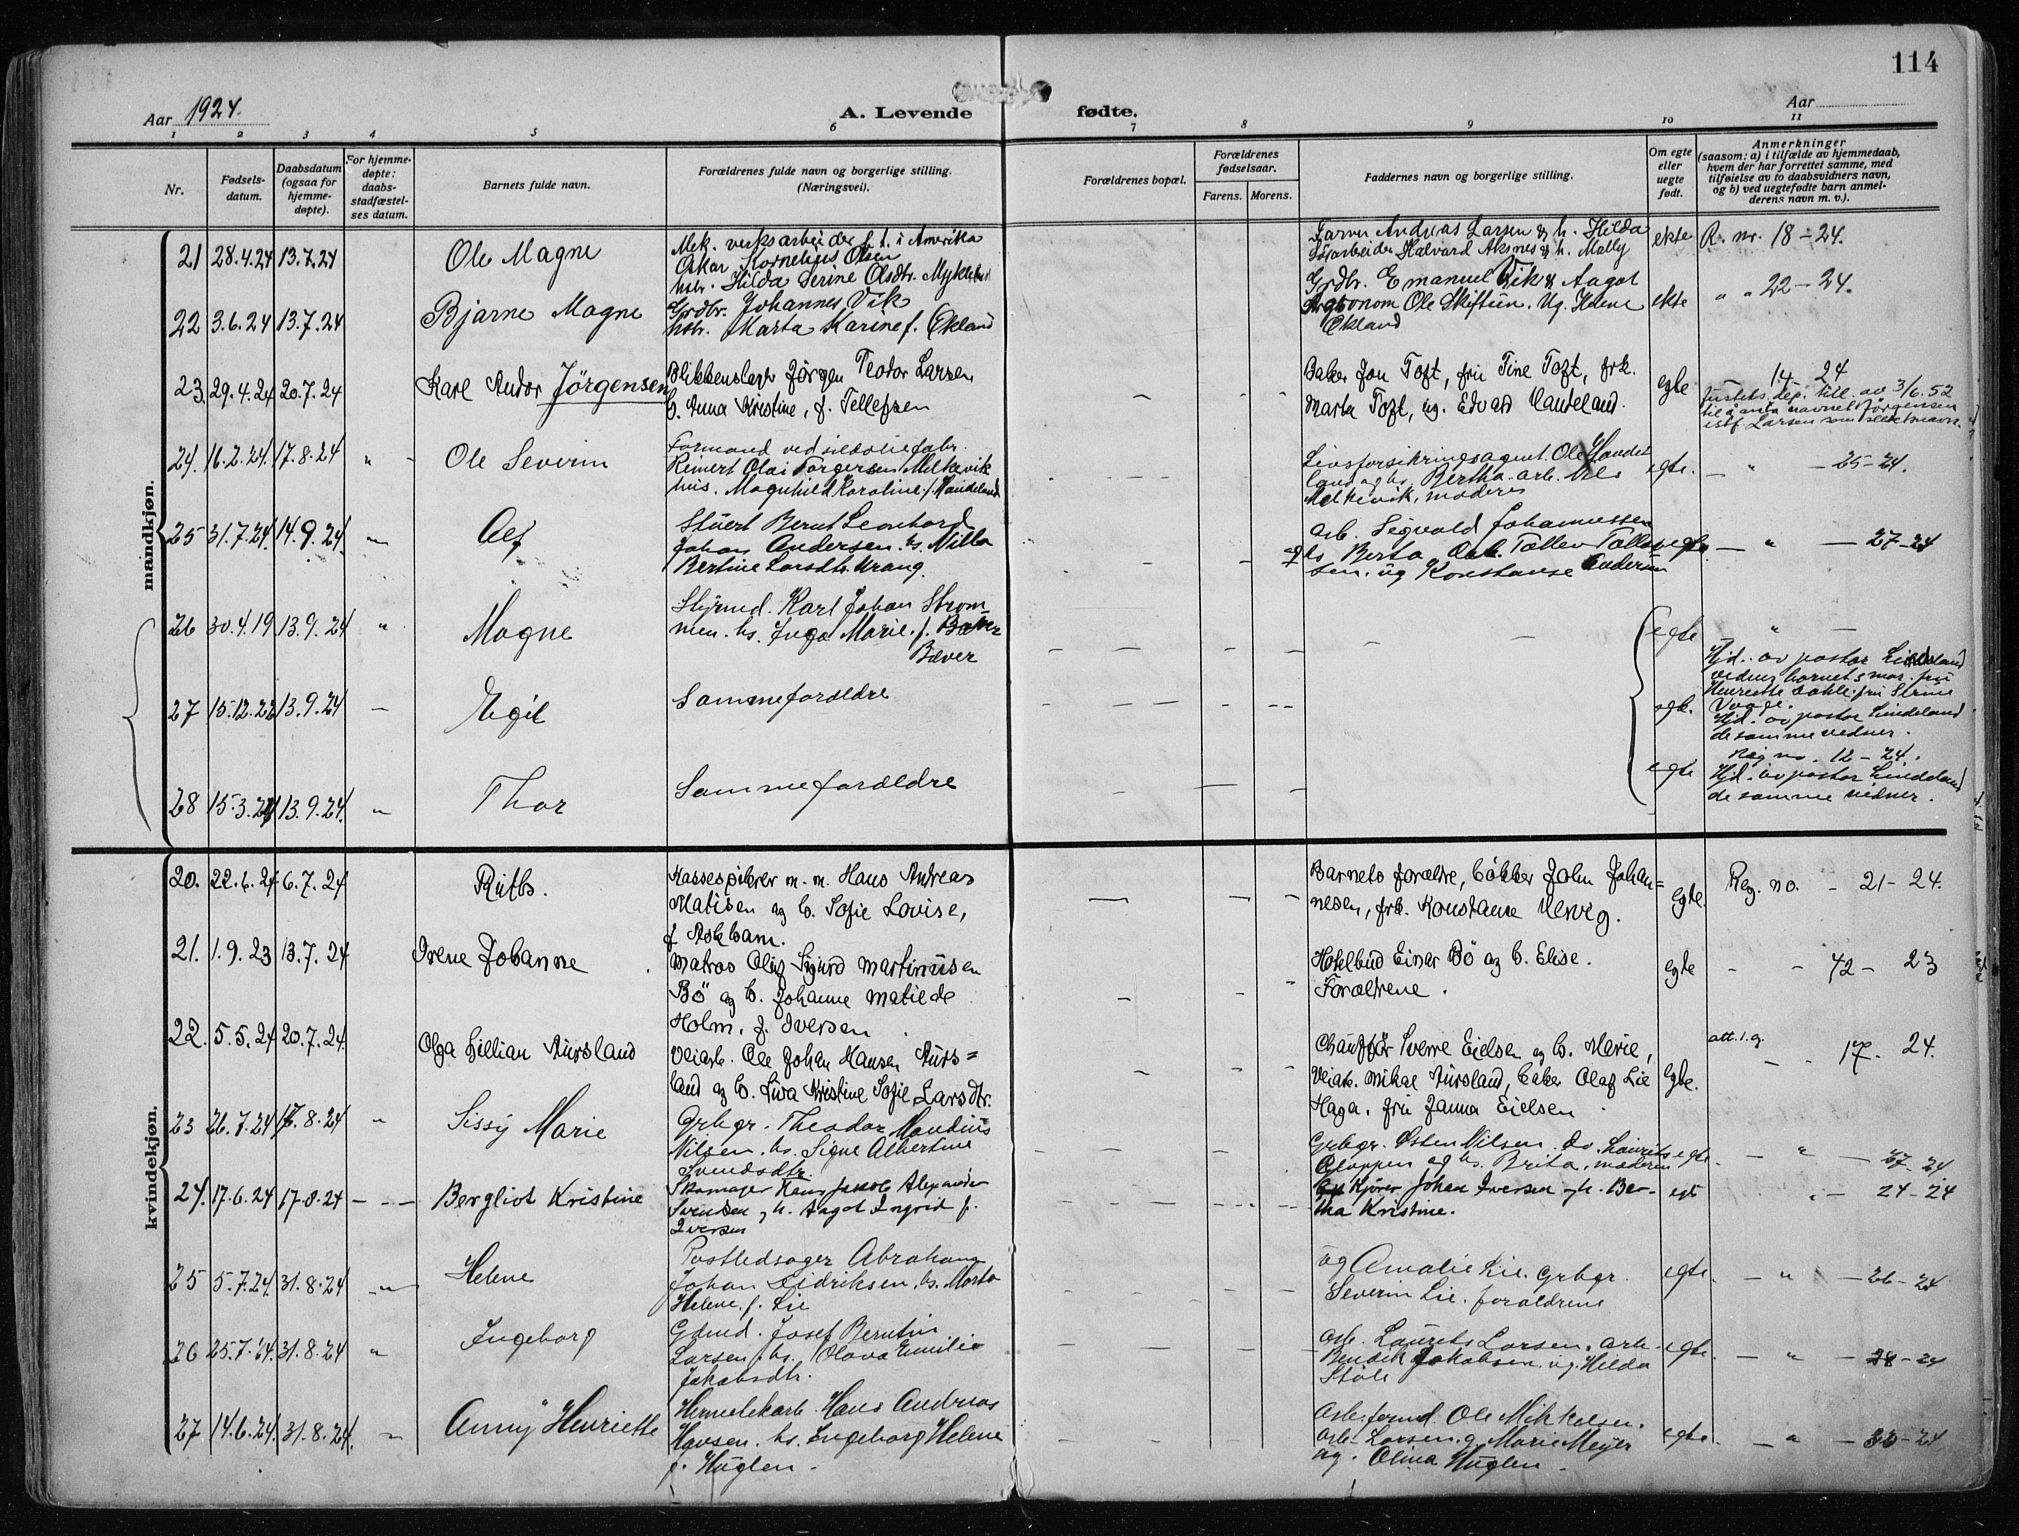 114
Aar 1924.
A. Levende fødte.
Aar
1 2 3 4 5 6 7 8 9 10 11
Nr.
Fødsels-
datum.
Daabsdatum
(ogsaa for
hjemme-
døpte).
For hjemme-
døpte:
daabs-
stadfæstel-
ses datum.
Barnets fulde navn.
Forældrenes fulde navn og borgerlige stilling.
(Næringsvei).
Forældrenes bopæl.
Forældrenes
fødselsaar.
Farens. Morens.
Faddernes navn og borgerlige stilling.
Om egte
eller
uegte
født.
Anmerkninger
(saasom: a) i tilfælde av hjemmedaab,
hvem der har forrettet samme, med
tilføielse av to daabsvidners navn,
og b) ved uegtefødte barn anmel-
derens navn m. v.).
mandkjøn.
21 28.4.24 13.7.24 Ole Magne
Mek. verksarbeider f. t. i Amerika
Oskar Kornelius Olsen
hstr. Hilda Serine Olsdtr.
Farver Andreas Larsen & h. Hilda
Halvard Aksnes & h. Mally
ekte R. nr. 18-24.
22 3.6.24 13.7.24 Bjarne Magne
Grdbr. Johannes Vik
hstr. Marta Karine f. Økland
Grdbr. Emanuel Vik & Aagot
Agronom Ole Skiftun. Ug. Helene
Økland
ekte " " 22-24.
23. 29.4.24 20.7.24 Karl Andor Jörgensen
Blikkenslagr Jörgen Teodor Larsen
h. Anna Kristine, f. Tellefsen
Baker Jon Toft, fru Tine Toft, frk.
Marta Toft, ug. Edvard Vauteland.
egte 14-24
Justets dep. till. av 3/6.52
til å anta navnet Jörgensen
istf Larsen som slektsnavn.
24. 16.2.24. 17.8.24 " - Ole Severin
Formand ved sildoliefabr.
Reinert Olai Torgersen Melkevik
hus. Magnhild Karoline f. Handeland
Livsforsikringsagent Ole Hande-
land og hs. Bertha. arb. Nels
Melkevik, moderen
egte. - " - 25-24.
25 31.7.24. 14.9.24. " Alf
Stuert Bernt Leonhard
Johan Andersen. hs. Milla
Bertine Larsdtr. Vrang.
arb. Sigvald Johannessen
og hs Berta. Arb. Tollev Tollev-
sen. ug Konstanse Andersen
egte. - " - 27-24
26 30.4.19 13.9.24 " Magne
Styrmd. Karl Johan Strom-
men. hs. Inga Marie. f.
Bæver
egte - " -
Hjd. av pastor Lindeland
vidner barnets mor. fru
Henriette Dahle. fru Stine
Vaage.
27 15.12.22 13.9.24 - Egil
Samme forældre
egte.
Hjd. av pastor Lindeland
de samme vidner.
28 15.3.24 13.9.24. " Thor
Samme forældre
egte
Reg no. 12-24.
Hjd. av pastor Lindeland
de samme vidner.
kvindekjøn.
20. 22.6.24 6.7.24 Ruth.
Kasseskriver m. m. Hans Andreas
Matisen og h. Sofie Lovise,
f. Askham.
Barnets forældre, bökker John Johan=
nesen, frk. Konstanse Hervig.
egte. Reg. no. - 21-24.
21. 1.9.23 13.7.24 Irene Johanne
Matros Olaf Sigurd Martinusen
Bö og h. Johanne Matilde
Holm, f. Iversen
Hotelbud Einar Bö og h. Elise.
Forældrene.
egte - - 42-23
22. 5.5.24 20.7.24. Olga Lillian Aursland
Veiarb. Ole Johan Hansen Aurs=
land og h. Liva Kristine Sofie Larsdtr.
Chauffør Sverre Eielsen og h. Marie,
Veiarb. Mikal Aursland, baker Olaf Lie
Haga, fru Janna Eielsen
egte. att. 1. g. - - 17-24.
23 26.7.24 17.8.24 " Sissy Marie
Grbgr. Theodor Mandius
Nilsen. hs. Signe Albertine
Svendsdtr.
Grbgr. Østen Nilsen. Do. Laurits
Gloppen og hs. Brita. moderen
egte. - " - 24
24. 17.6.24 17.8.24 - - - Bergliot Kristine
Skomager Hans Jakob Alexander
Svendsen og h. Aagot Ingrid f.
Iversen
Kjörer Johan Iversen og h. Ber-
tha Kristine.
egte " - 24-24
25 5.7.24. 31.8.24 " Helene
Postledsager Abraham
Johan Didriksen. hs. Marta
Helene. f. Lie
ug Amalie Lie. Grbgr.
Severin Lie. forældrene
egte. - " - 26-24
26 25.7.24. 31.8.24 " Ingeborg
Gdmd. Josef Berntin
Larsen. hs. Olava Emilie
Jakobsdtr.
arb. Laurits Larsen. Arb.
Bendik Jakobsen. ug. Hilda
Stole
egte. - " - 28-24
27 14.6.24. 31.8.24. " Anny Henriette
Hermetikarb. Hans Andreas
Hansen. hs. Ingeborg Helene
f. Huglen.
Arb.formd. Ole Mikkelsen.
Arb. Larsen. Marie Meyer
ug. Olina Huglen.
egte. - " - 30-24